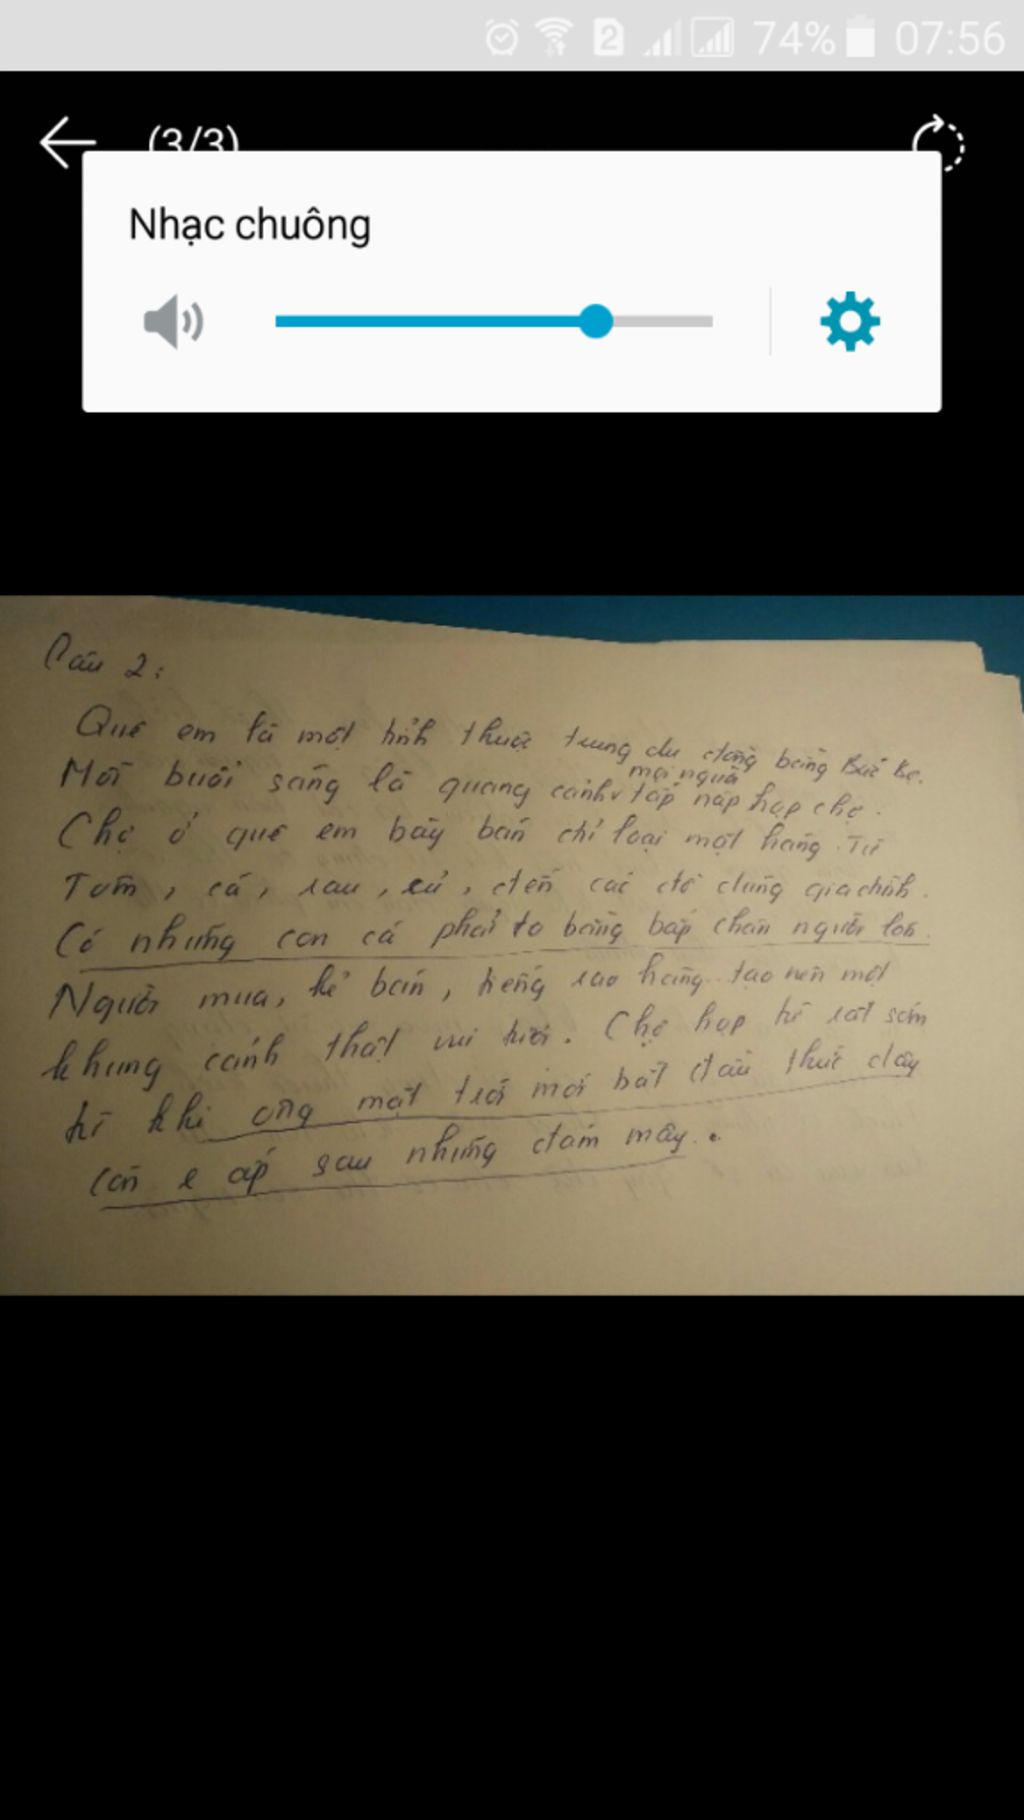 74% 07:56
(3/3)
Nhạc chuông
Câu 2:
Quê em là một tỉnh thuộc trung du đồng bằng Bắc Bộ.
Mỗi buổi sáng là quang cảnh mọi người tấp nập họp chợ.
Chợ ở quê em bày bán chỉ loại mặt hàng. Từ
Tôm, cá, rau, củ, đến các đồ dùng gia đình.
Có những con cá phải to bằng bắp chân người lớn.
Người mua, kẻ bán, tiếng rao hàng tạo nên một
khung cảnh thật vui tươi. Chợ họp từ rất sớm
từ khi ông mặt trời mới bắt đầu thức dậy
còn e ấp sau những đám mây.